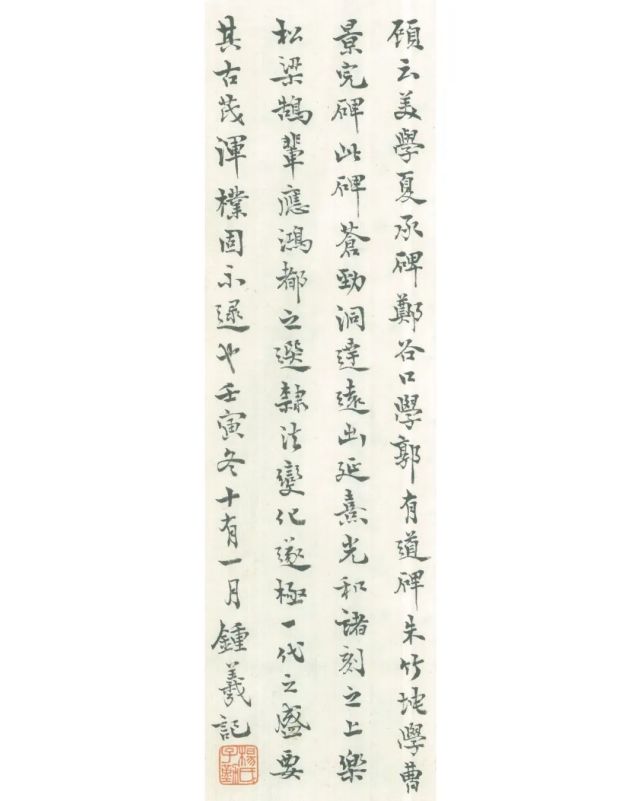 顧云美學夏承碑鄭谷口學郭有道碑朱竹垞學曹
景完碑此碑蒼勁洞達遠出延熹光和諸刻之上樂
松梁鵠輩應鴻都之選隸法變化遂極一代之盛要
其古茂渾樸固不逮也壬寅冬十有一月鍾羲記
楊氏
子勤